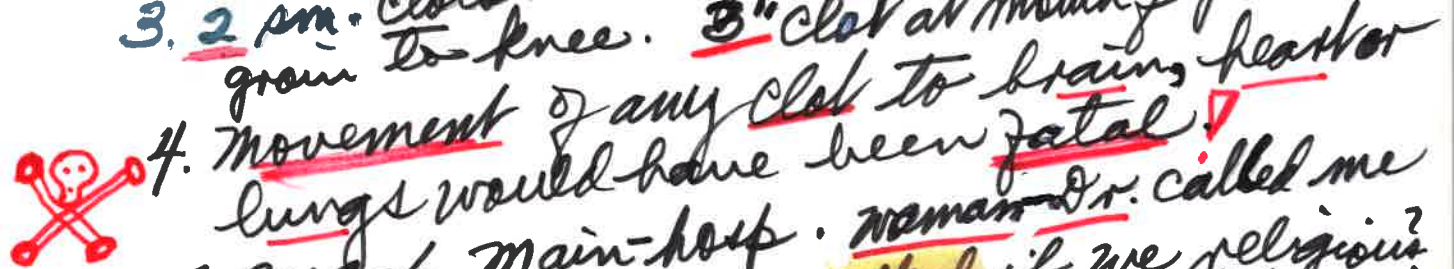 3. 2 sm.
groin to knee. 3" clot at
4. Movement of any clot to brain, heart or
lungs would have been fatal!
Main-hosp. woman-Dr. called me
if we religious?